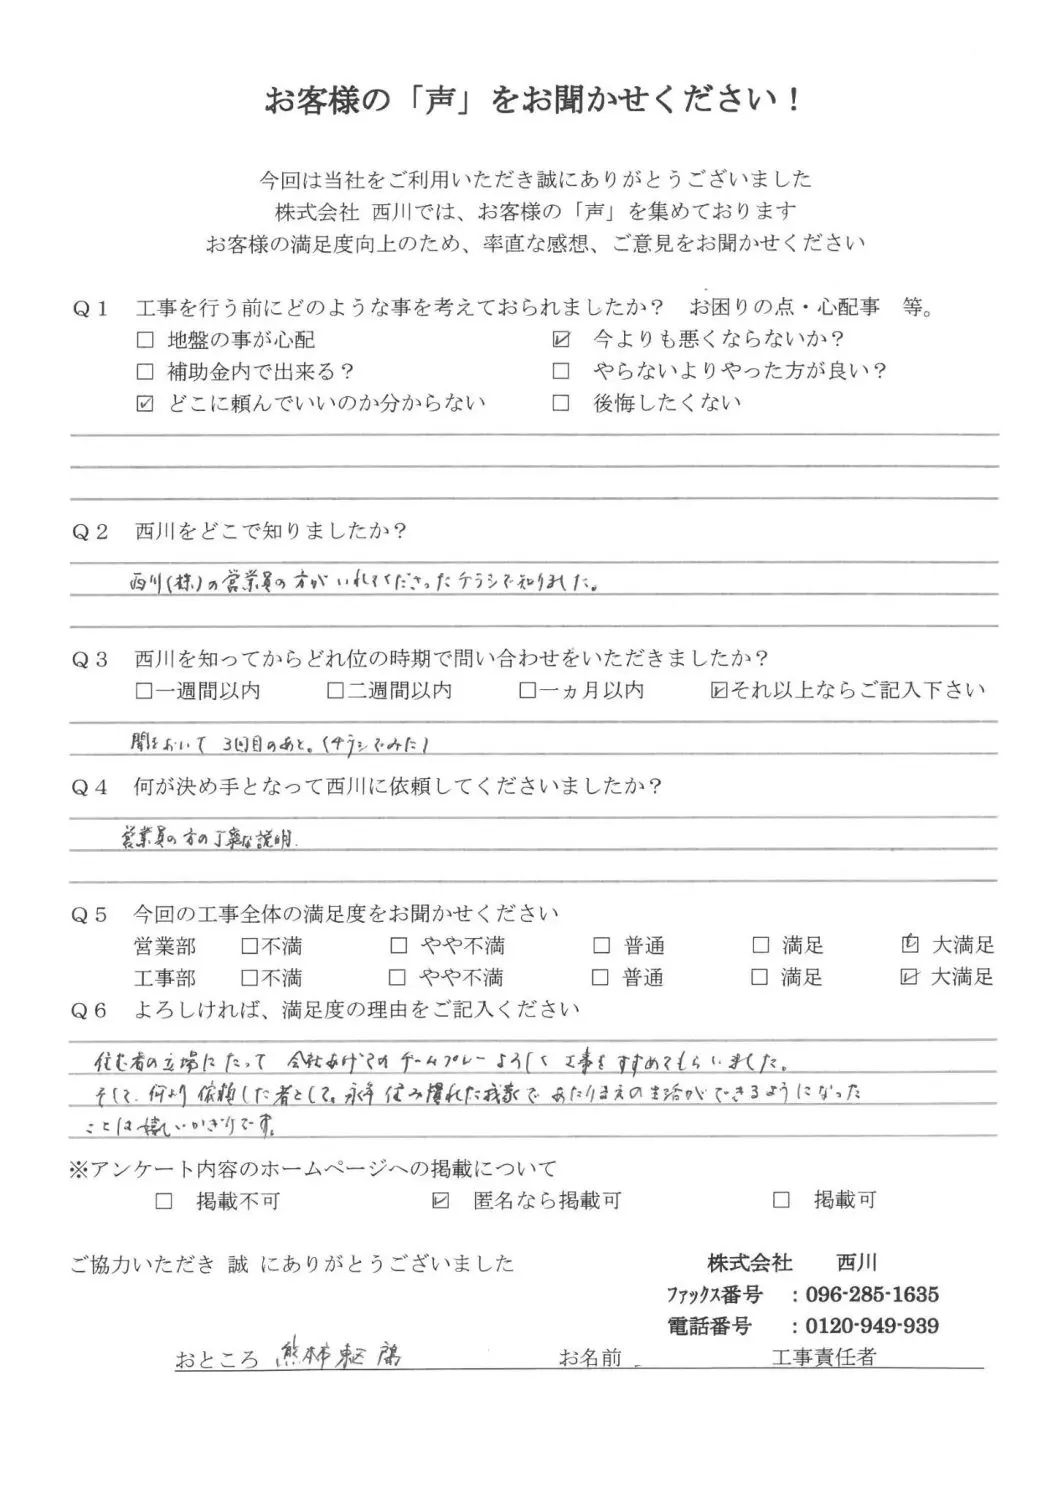 お客様の「声」をお聞かせください！
今回は当社をご利用いただき誠にありがとうございました
株式会社 西川では、お客様の「声」を集めております
お客様の満足度向上のため、率直な感想、ご意見をお聞かせください
Q1 工事を行う前にどのような事を考えておられましたか？ お困りの点・心配事 等。
□ 地盤の事が心配 ☑ 今よりも悪くならないか？
□ 補助金内で出来る？ □ やらないよりやった方が良い？
☑ どこに頼んでいいのか分からない □ 後悔したくない
Q2 西川をどこで知りましたか？
西川(株)の営業員の方がいれてくださったチラシで知りました。
Q3 西川を知ってからどれ位の時期で問い合わせをいただきましたか？
□一週間以内 □二週間以内 □一ヵ月以内 ☑それ以上ならご記入下さい
間をおいて 3回目のあと。(チラシでみた)
Q4 何が決め手となって西川に依頼してくださいましたか？
営業員の方の丁寧な説明.
Q5 今回の工事全体の満足度をお聞かせください
営業部 □不満 □ やや不満 □ 普通 □ 満足 ☑ 大満足
工事部 □不満 □ やや不満 □ 普通 □ 満足 ☑ 大満足
Q6 よろしければ、満足度の理由をご記入ください
住む者の立場にたって 会社あげてのチームプレーよろしく工事をすすめてもらいました。
そして、何より依頼した者として。永年住み慣れた我家であたりまえの生活ができるようになった
ことは嬉しいかぎりです。
※アンケート内容のホームページへの掲載について
□ 掲載不可 ☑ 匿名なら掲載可 □ 掲載可
ご協力いただき 誠 にありがとうございました
株式会社 西川
ﾌｧｯｸｽ番号 ：096-285-1635
電話番号 ：0120-949-939
おところ 熊本市東区 お名前 工事責任者